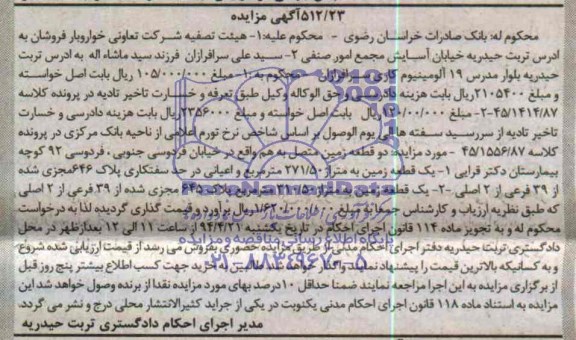 ۵۱۲/۲۳آگهی مزایده
محکوم له: بانک صادرات خراسان رضوی - محکوم علیه:۱- هیئت تصفیه شرکت تعاونی خواروبار فروشان به
ادرس تربت حیدریه خیابان آسایش مجمع امور صنفی ۲- سید علی سرافرازان فرزند سید ماشاء اله به ادرس تربت
حیدریه بلوار مدرس ۱۹ آلومینیوم کاری سرافرازان محکوم به :۱- مبلغ ۱۰۵/۰۰۰/۰۰۰ ریال بابت اصل خواسته
و مبلغ ۲۱۰۵۴۰۰ریال بابت هزینه دادرسی و حق الوکاله وکیل طبق تعرفه و خسارت تاخیر تادیه در پرونده کلاسه
۴۵/۱۴۱۴/۸۷-۲- مبلغ ریال بابت اصل خواسته و مبلغ ۲۳۵۶۰۰۰ریال بابت هزینه دادرسی و خسارت
تاخیر تادیه از سررسید سفته ها الی یوم الوصول بر اساس شاخص نرخ تورم اعلامی از ناحیه بانک مرکزی در پرونده
کلاسه ۴۵/۱۵۵۶/۸۷ - مورد مزایده: دو قطعه زمین متصل به هم واقع در خیابان فردوسی جنوبی ، فردوسی ۹۲ کوچه
بیمارستان دکتر قرایی ۱- یک قطعه زمین به متراژ ۲۷۱/۵۰ مترمربع و اعیانی در حد سفتکاری پلاک ۶۴۶مجزی شده
از ۳۹ فرعی از ۲ اصلی -۲- یک قطعه زمین به متراژ پلاک ۶۴۵ مجزی شده از ۳۹ فرعی از ۲ اصلی
که طبق نظریه ارزیاب و کارشناس جمعا به مبلغ ریال برآورد و قیمت گذاری گردیده لذا به درخواست
محکوم له و به تجویز ماده ۱۱۴ قانون اجرای احکام در تاریخ یکشنبه ۹۴/۴/۲۱ از ساعت ۱۱ الی ۱۲ بعدازظهر در محل
دادگستری تربت حیدریه دفتر اجرای احکام مدنی از طریق مزایده حضوری بفروش می رسد از قیمت ارزیابی شده شروع
و به کسانیکه بالاترین قیمت را پیشنهاد نمایند واگذار خواهد شد طالبین به خرید جهت کسب اطلاع بیشتر پنج روز قبل
از برگزاری مزایده به این اجرا مراجعه نمایند ضمنا حداقل ۱۰درصد بهای مورد مزایده نقدا از برنده وصول خواهد شد این
مزایده به استناد ماده ۱۱۸ قانون اجرای احکام مدنی یکنوبت در یکی از جراید کثیرالانتشار محلی درج و نشر می گردد.
مدیر اجرای احکام دادگستری تربت حیدریه
پایگاه اطلاع رسانی مناقصه و مزایده